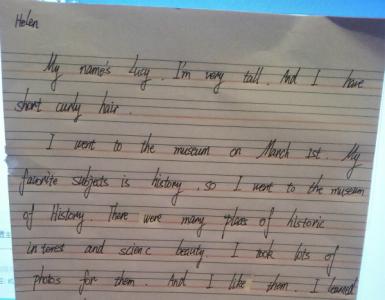 Helen
My name's Lucy. I'm very tall. And I have
short curly hair.
I went to the museum on March 1st. My
favorite subjects is history, so I went to the museum
of History. There were many places of historic
interest and scienc beauty. I took lots of
photos for them. And I like them. I learned